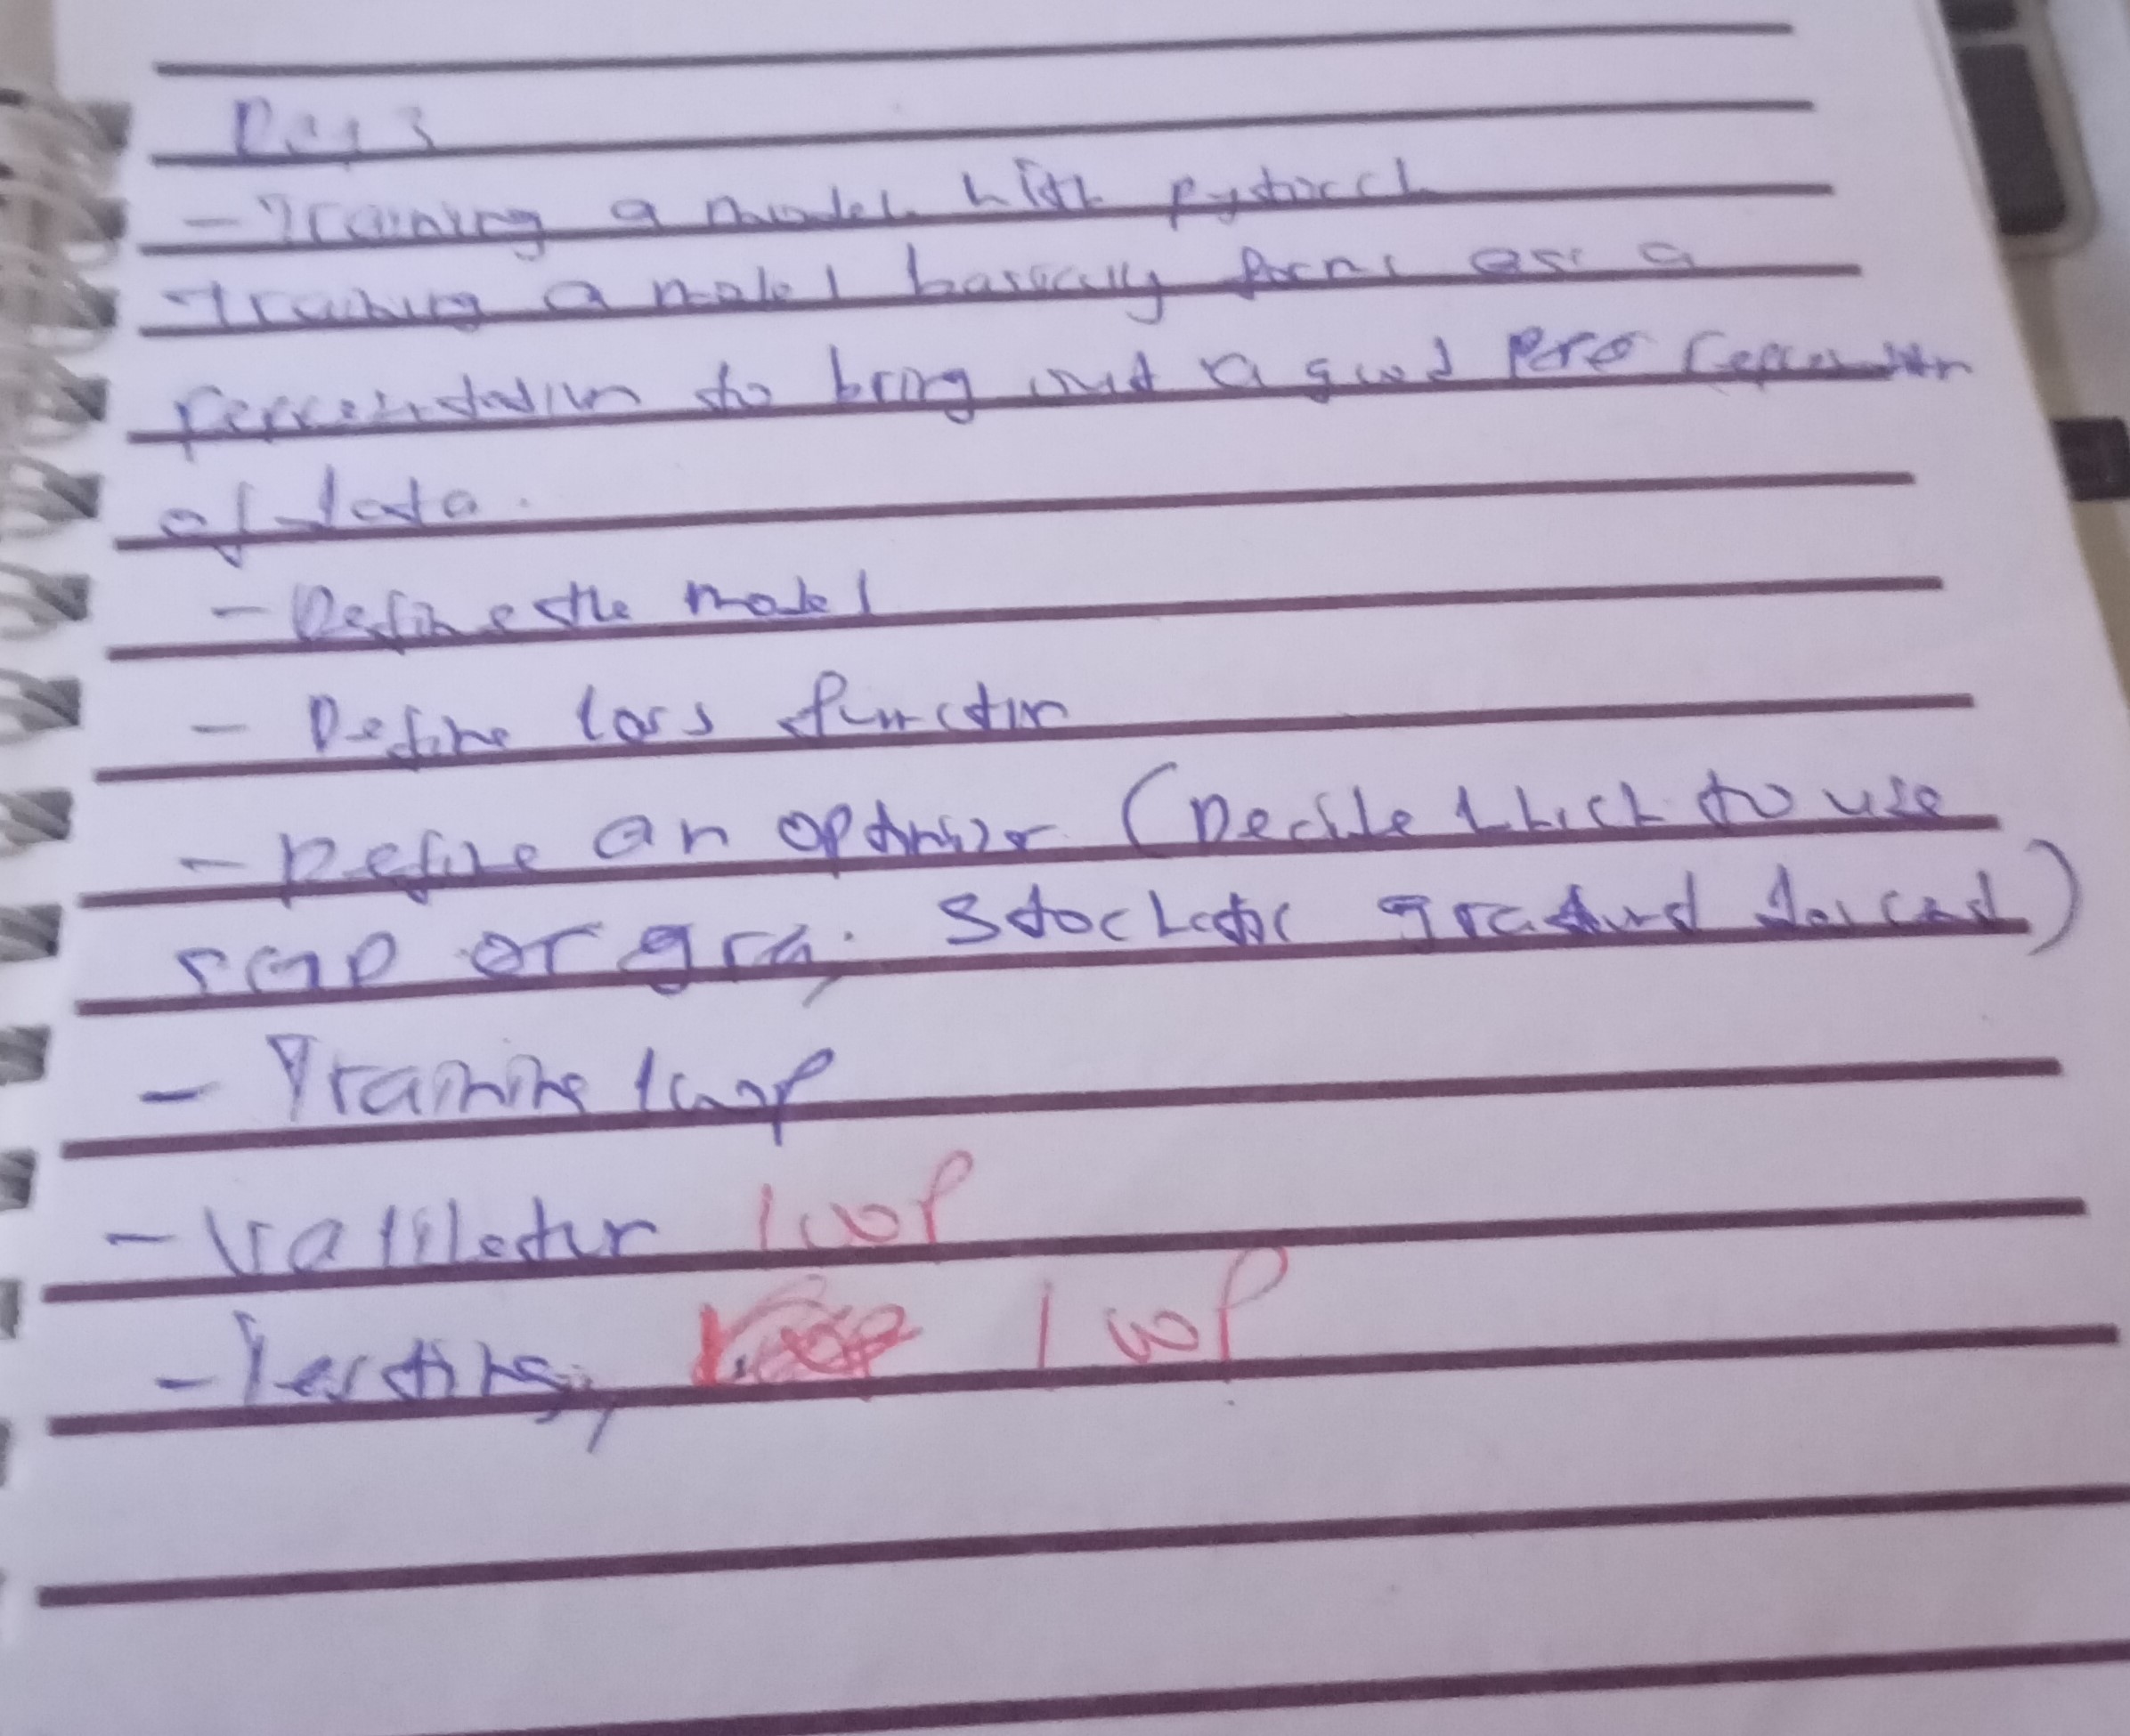 Day 3
- Training a model with pytorch
Training a model basically forms as a
to bring out a good
of data.
- Define the model
- Define loss function
- Define an optimizer (Decide which to use
SGD or gra, Stochatic gradient)
- Training loop
- Validation loop
- Testing, loop